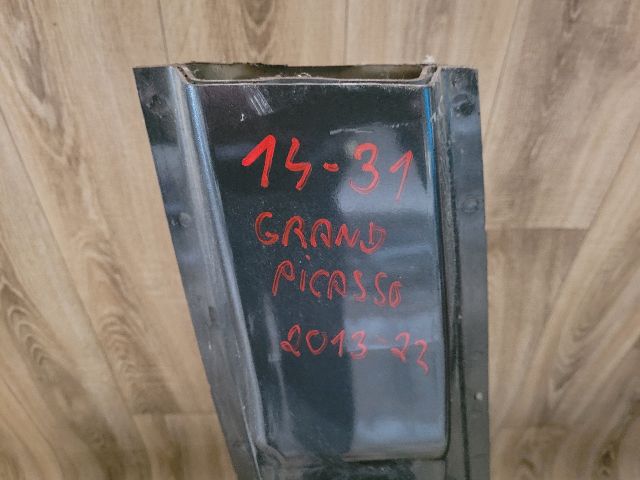 14-31
GRAND
PICASSO
2013-23